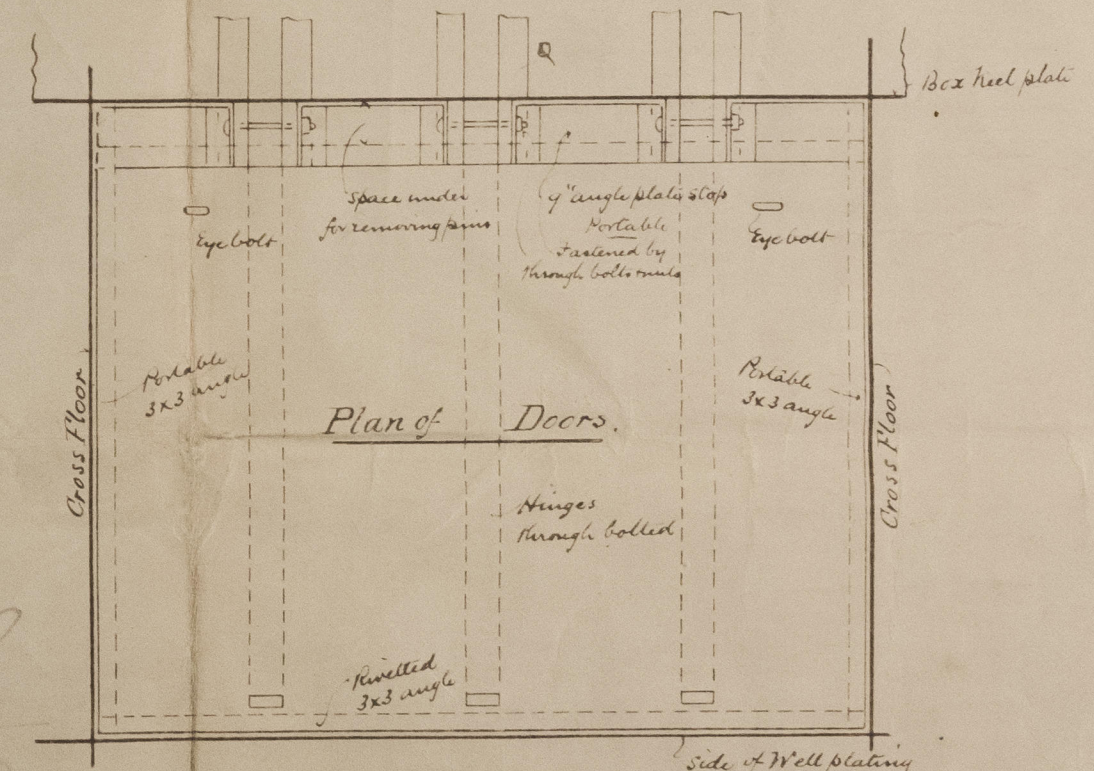 Box keel plate
Space under
for removing pins
9" angle plate stop
Portable
Fastened by
through bolts & nuts
Eye bolt
Eye bolt
Portable
3x3 angle
Portable
3x3 angle
Cross Floor
Plan of Doors.
Cross Floor
Hinges
through bolted
Rivetted
3x3 angle
Side of Well plating